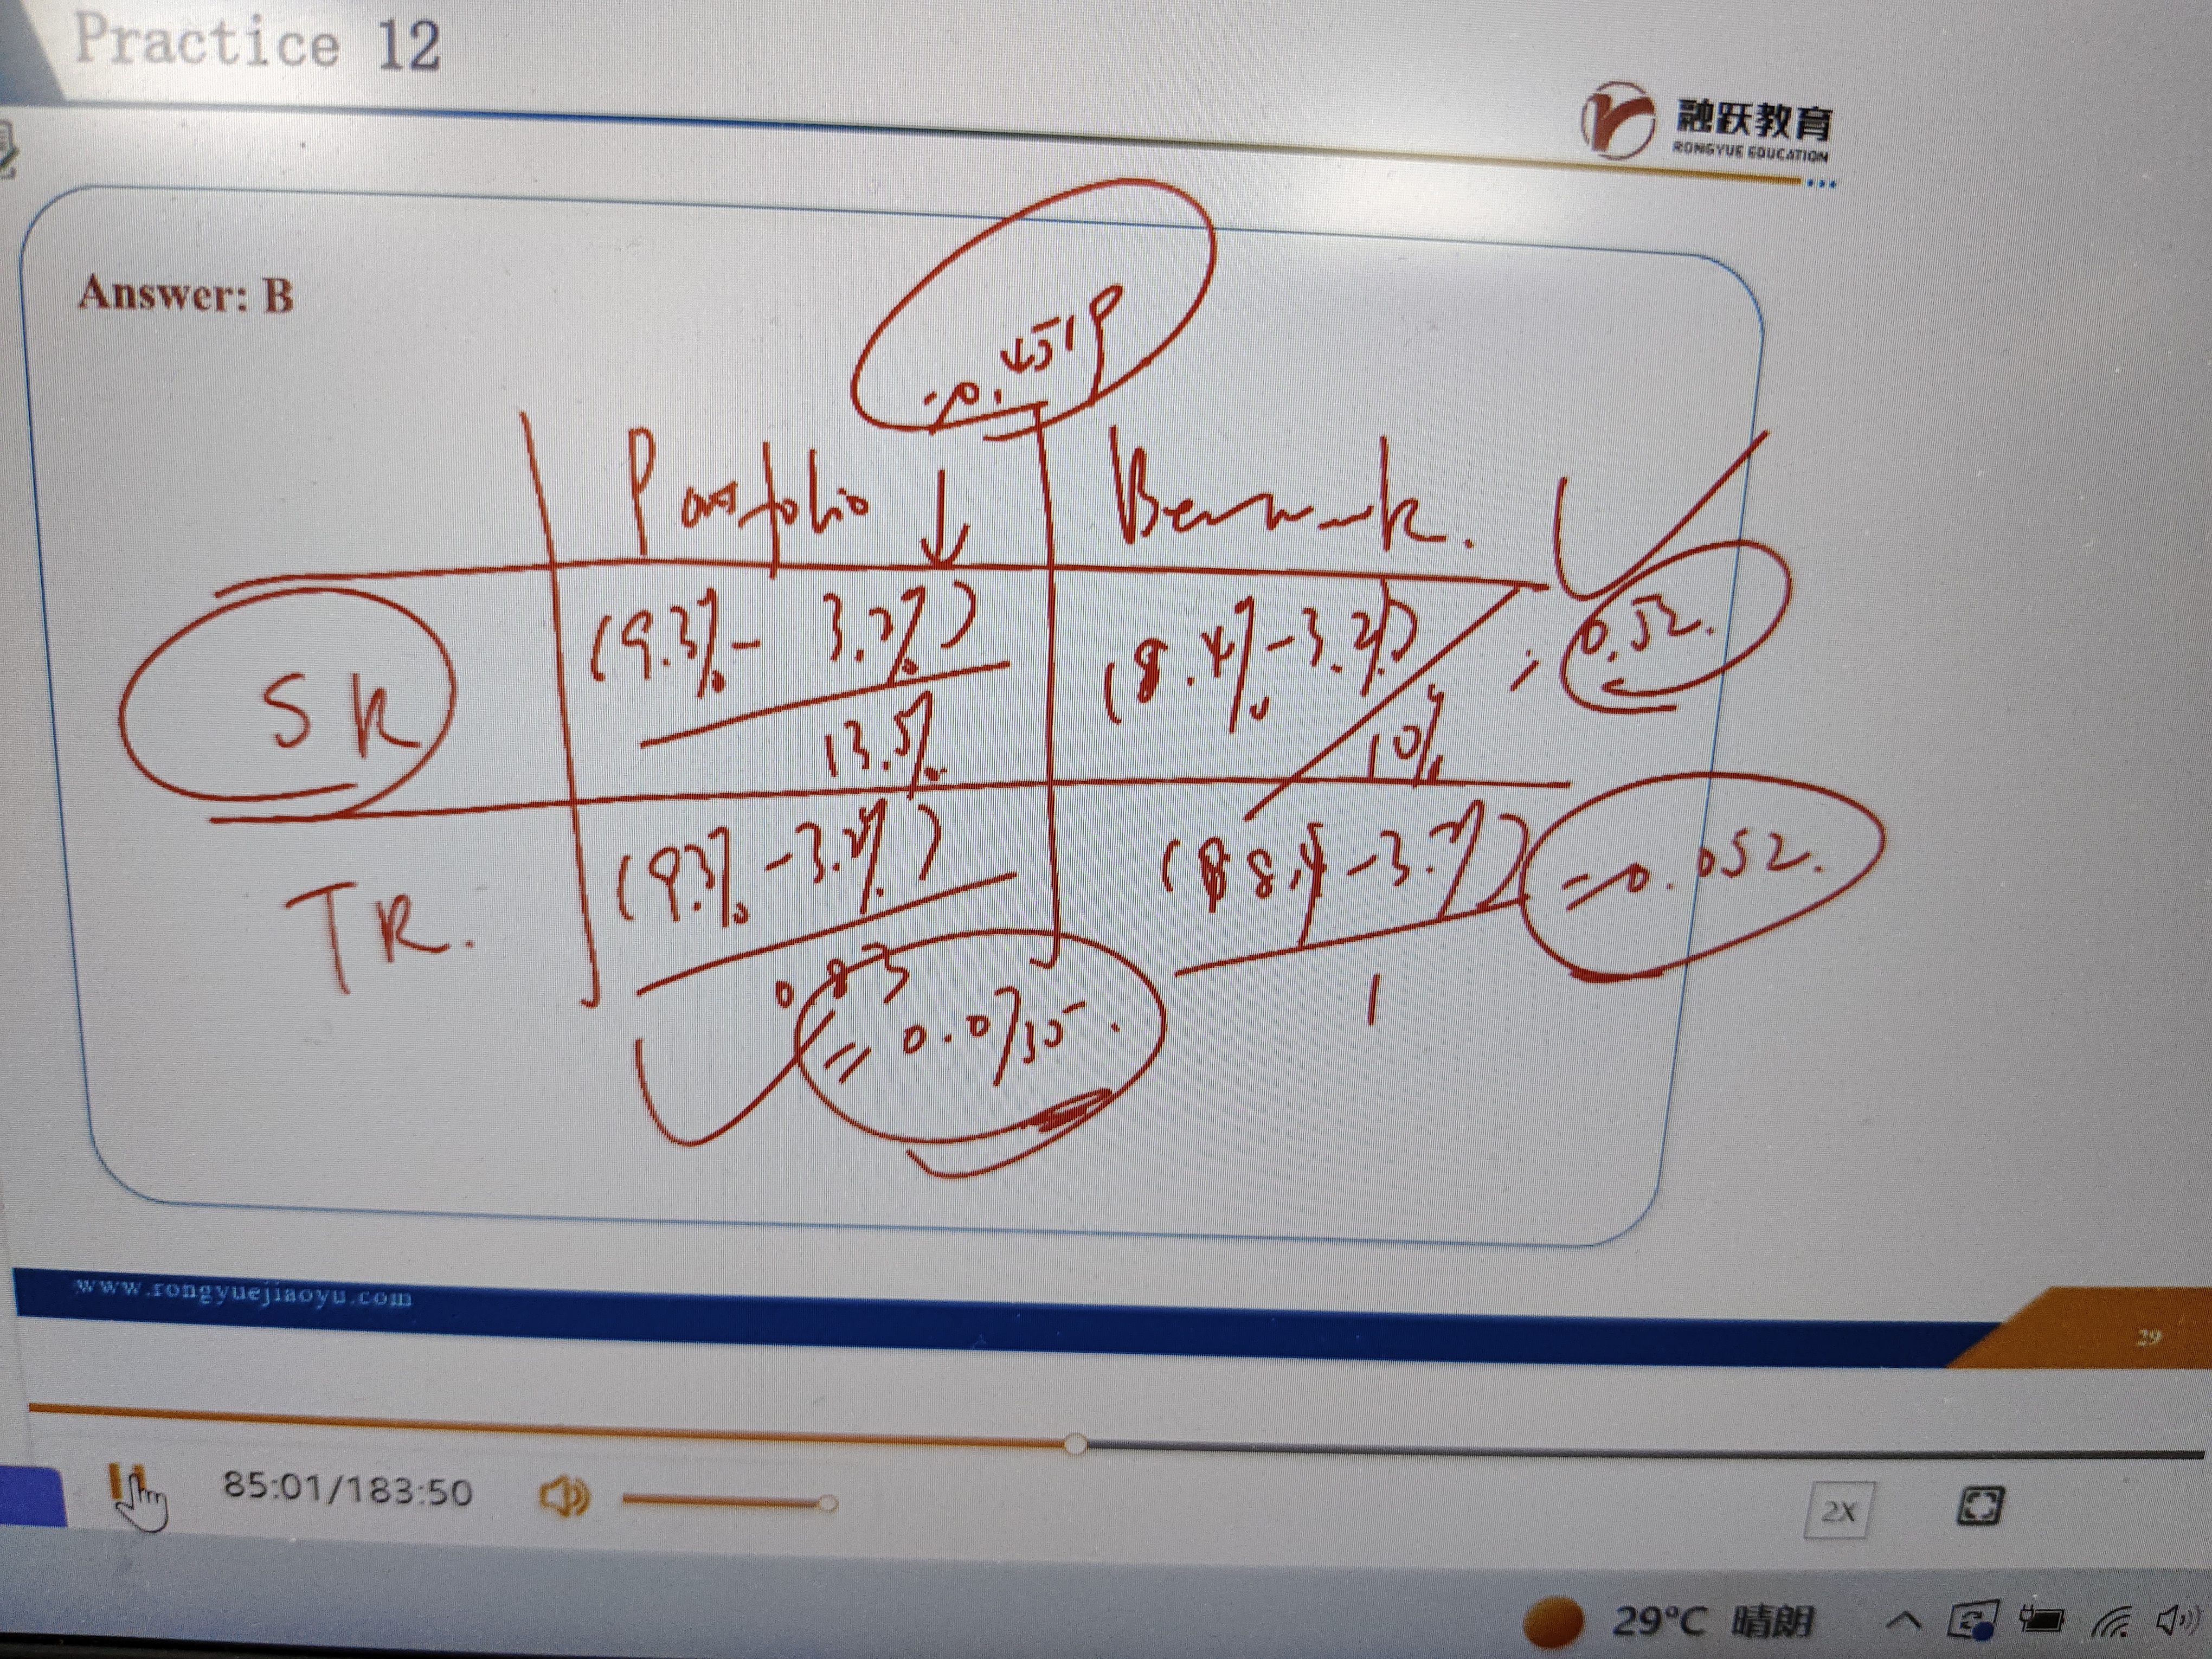 Practice 12
融跃教育
RONGYUE EDUCATION
Answer: B
=0.4519
Portfolio
SR
(9.3%-3.2%)
13.5%
(8.4%-3.2%)
10%
=0.52.
TR.
(9.3%-3.2%)
0.83
=0.0735.
(8.4-3.2%)
1
=0.052.
www.rongyuejiaoyu.com
29
85:01/183:50
2X
29°C 晴朗